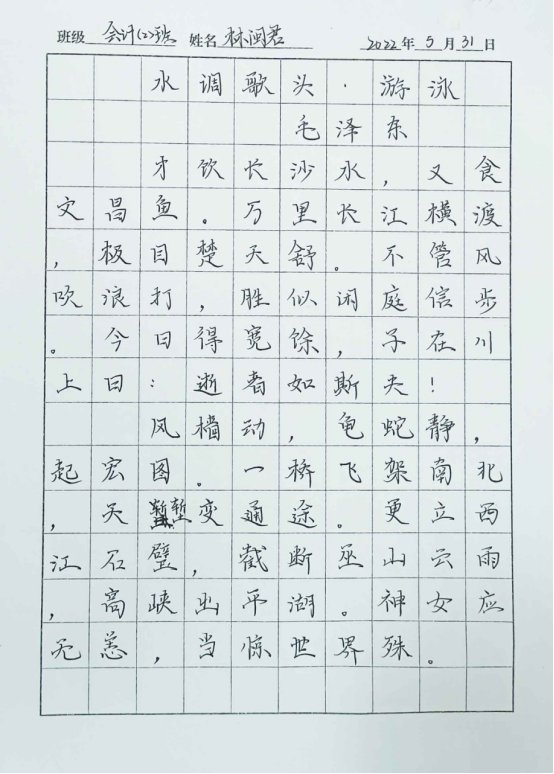 班级 会计(2)班 姓名 林闽君 2022年5月31日
水调歌头·游泳
毛泽东
才饮长沙水，又食
文昌鱼。万里长江横渡
，极目楚天舒。不管风
吹浪打，胜似闲庭信步
。今日得宽馀，子在川
上曰：逝者如斯夫！
风樯动，龟蛇静，
起宏图。一桥飞架南北
，天堑变通途。更立西
江石壁，截断巫山云雨
，高峡出平湖。神女应
无恙，当惊世界殊。